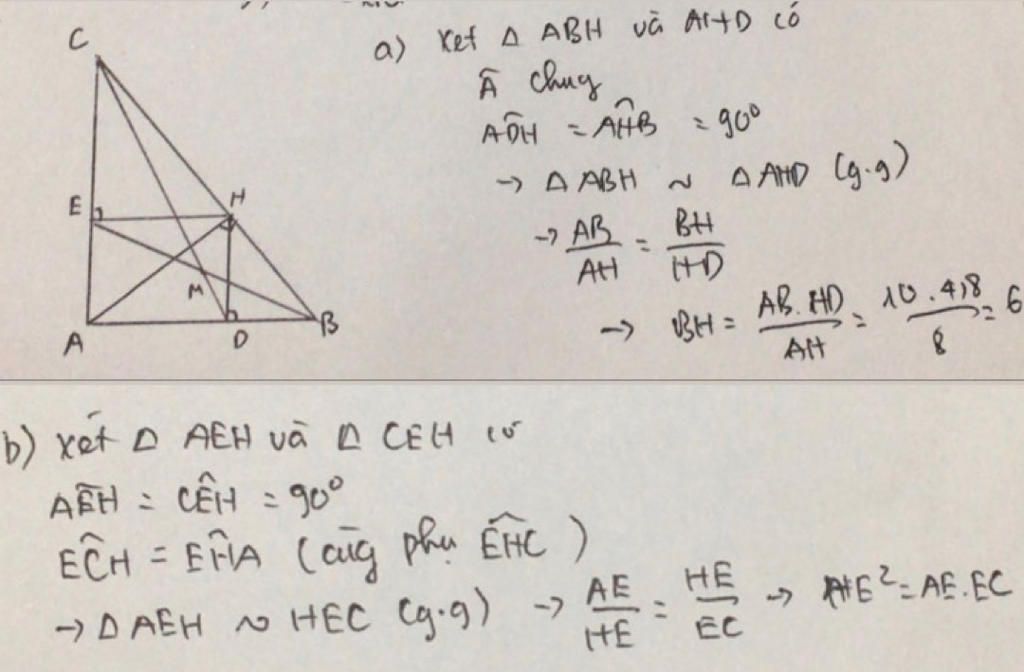 C
E
H
M
A
D
B
a) Xét Δ ABH và AHD có
Â chung
AD̂H = AĤB = 90°
→ Δ ABH ~ Δ AHD (g.g)
→ AB/AH = BH/HD
→ BH = AB.HD/AH = 10.4,8/8 = 6
b) Xét Δ AEH và Δ CEH có
AÊH = CÊH = 90°
EĈH = EĤA (cùng phụ EĤC)
→ Δ AEH ~ HEC (g.g) → AE/HE = HE/EC → HE² = AE.EC